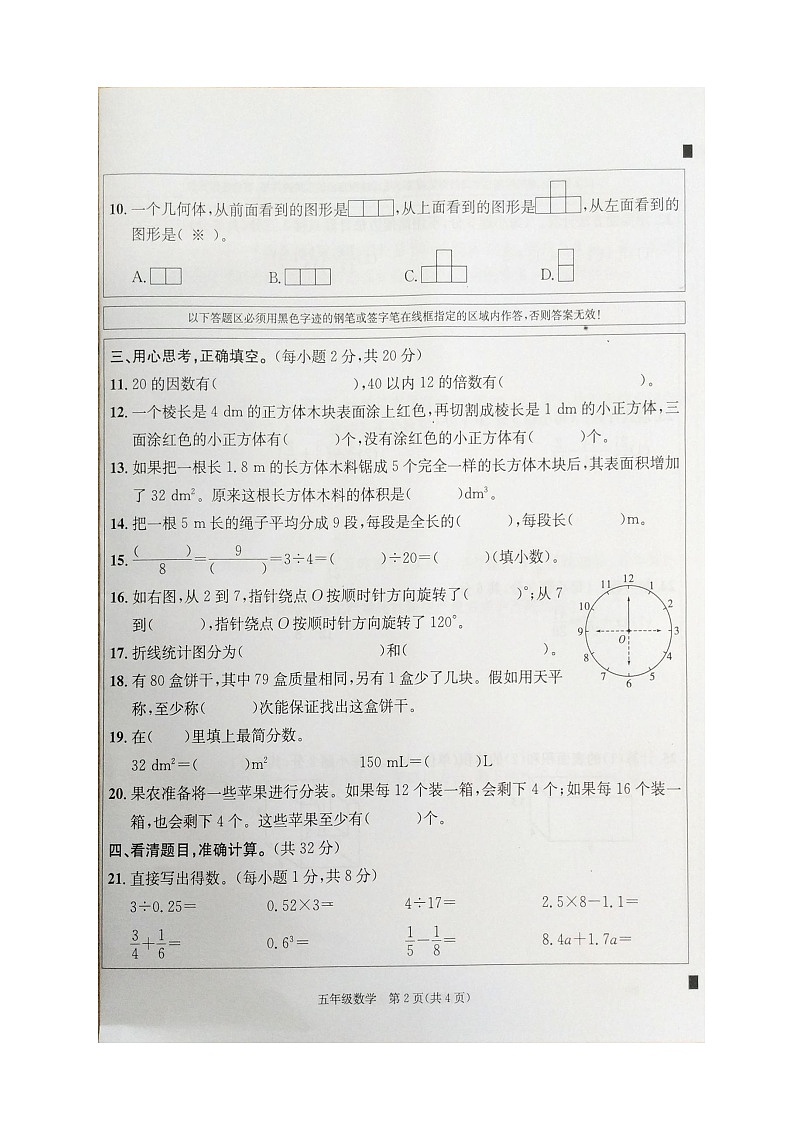 10. 一个几何体,从前面看到的图形是,从上面看到的图形是,从左面看到的
图形是( ※ )。
A. B. C. D.
以下答题区必须用黑色字迹的钢笔或签字笔在线框指定的区域内作答,否则答案无效!
三、用心思考,正确填空。(每小题 2 分,共 20 分)
11. 20 的因数有( ),40 以内 12 的倍数有( )。
12. 一个棱长是 4 dm 的正方体木块表面涂上红色,再切割成棱长是 1 dm 的小正方体,三
面涂红色的小正方体有( )个,没有涂红色的小正方体有( )个。
13. 如果把一根长 1.8 m 的长方体木料锯成 5 个完全一样的长方体木块后,其表面积增加
了 32 dm²。原来这根长方体木料的体积是( )dm³。
14. 把一根 5 m 长的绳子平均分成 9 段,每段是全长的( ),每段长( )m。
15. ( )/8 = 9/( ) =3÷4=( )÷20=( )(填小数)。
16. 如右图,从 2 到 7,指针绕点 O 按顺时针方向旋转了( )°;从 7
到( ),指针绕点 O 按顺时针方向旋转了 120°。
12 1 2 3 4 5 6 7 8 9 10 11 O
17. 折线统计图分为( )和( )。
18. 有 80 盒饼干,其中 79 盒质量相同,另有 1 盒少了几块。假如用天平
称,至少称( )次能保证找出这盒饼干。
19. 在( )里填上最简分数。
32 dm²=( )m² 150 mL=( )L
20. 果农准备将一些苹果进行分装。如果每 12 个装一箱,会剩下 4 个;如果每 16 个装一
箱,也会剩下 4 个。这些苹果至少有( )个。
四、看清题目,准确计算。(共 32 分)
21. 直接写出得数。(每小题 1 分,共 8 分)
3÷0.25= 0.52×3= 4÷17= 2.5×8-1.1=
3/4+1/6= 0.6³= 1/5-1/8= 8.4a+1.7a=
五年级数学 第 2 页(共 4 页)